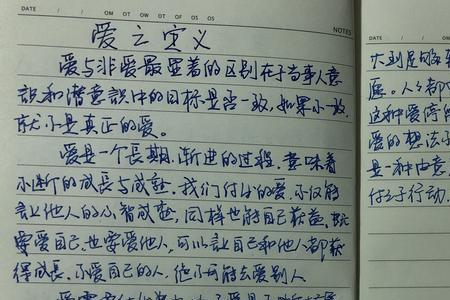 DATE / / OM OT DW DT OF OS OS
NOTES
DATE / /
爱之定义
爱与非爱最显著的区别在于当事人意
识和潜意識中的目标是否一致,如果不一致,
就不是真正的爱。
爱是一个長期、渐进的过程,意味着
不断的成長与成熟。我们付出的爱,不仅能
让他人的心智成熟,同样也能自己获益。
要爱自己,也要爱他人,可以让自己和他人都获
得成長。不爱自己的人,他不可能去爱别人
大到足够
愿。人人都
这种爱停
爱的想法不
是一种由意
付之于行动。